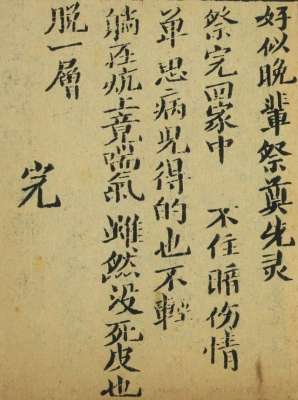 好似晚輩祭奠先灵
祭完回家中 不住暗伤情
单思病兒得的也不輕
躺在炕上竟喘氣 雖然没死皮也
脱一層
完